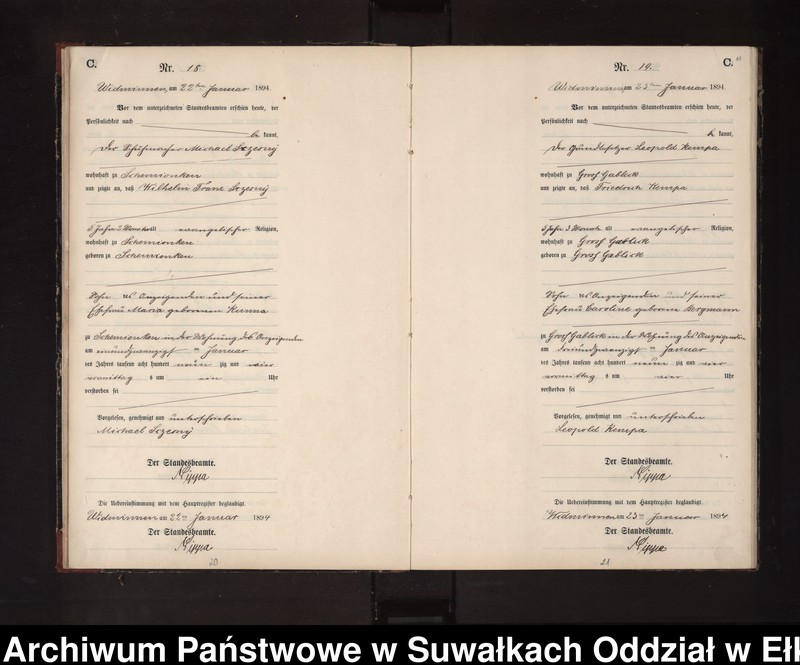 C.
Nr. 18
Widminnen, am 22ten Januar 1894.
Vor dem unterzeichneten Standesbeamten erschien heute, der
Persönlichkeit nach
be kannt,
Der Schuhmacher Michael Sczesny
wohnhaft zu Schemionken
und zeigte an, daß Wilhelm Franz Sczesny
3 Monate alt evangelischer Religion,
wohnhaft zu Schemionken
geboren zu Schemionken
Sohn des Anzeigenden und seiner
Ehefrau Maria geborenen
zu Schemionken in der Wohnung des Anzeigenden
am einundzwanzigsten Januar
des Jahres tausend acht hundert neun zig und vier
vormittag s um ein Uhr
verstorben sei
Vorgelesen, genehmigt und unterschrieben
Michael Sczesny
Der Standesbeamte.
Nippa
Die Uebereinstimmung mit dem Hauptregister beglaubigt.
Widminnen am 22ten Januar 1894
Der Standesbeamte.
Nippa
20
C.
Nr. 19.
Widminnen, am 23ten Januar 1894.
Vor dem unterzeichneten Standesbeamten erschien heute, der
Persönlichkeit nach
be kannt,
Der Grundbesitzer Leopold Kempa
wohnhaft zu Gross Gablick
und zeigte an, daß Friedrich Kempa
3 Monate alt evangelischer Religion,
wohnhaft zu Gross Gablick
geboren zu Gross Gablick
Sohn des Anzeigenden und seiner
Ehefrau Caroline geboren Bergmann
zu Gross Gablick in der Wohnung des Anzeigenden
am dreiundzwanzigsten Januar
des Jahres tausend acht hundert neun zig und vier
vormittag s um vier Uhr
verstorben sei
Vorgelesen, genehmigt und unterschrieben
Leopold Kempa
Der Standesbeamte.
Nippa
Die Uebereinstimmung mit dem Hauptregister beglaubigt.
Widminnen am 23ten Januar 1894
Der Standesbeamte.
Nippa
21
Archiwum Państwowe w Suwałkach Oddział w Ełk